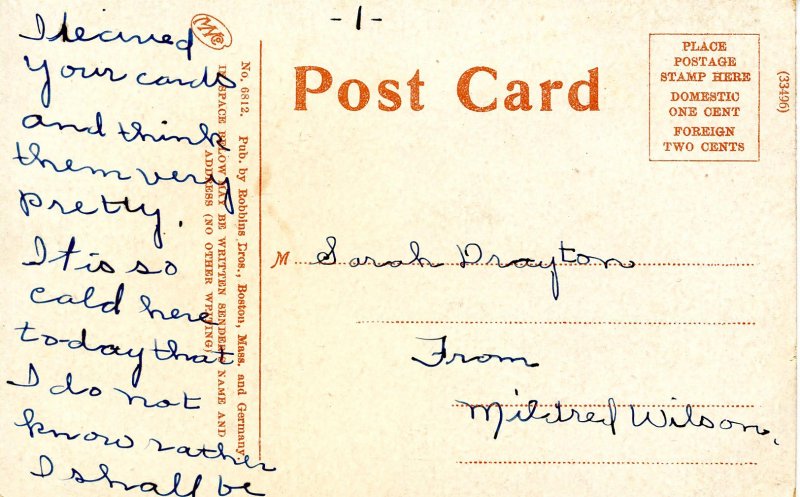 -1-
I recived
your cards
and think
them very
pretty.
It is so
cald here
to-day that
I do not
know rather
I shall be
No. 6812. Pub. by Robbins Bros., Boston, Mass. and Germany.
IN SPACE BELOW MAY BE WRITTEN SENDER'S NAME AND
ADDRESS (NO OTHER WRITING)
Post Card
PLACE
POSTAGE
STAMP HERE
DOMESTIC
ONE CENT
FOREIGN
TWO CENTS
(33496)
M Sarah Drayton
From
Mildred Wilson.